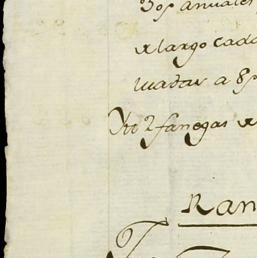 dos anuales
de largo cada
uadas a 8 p
Yto 2 fanegas de
Ran